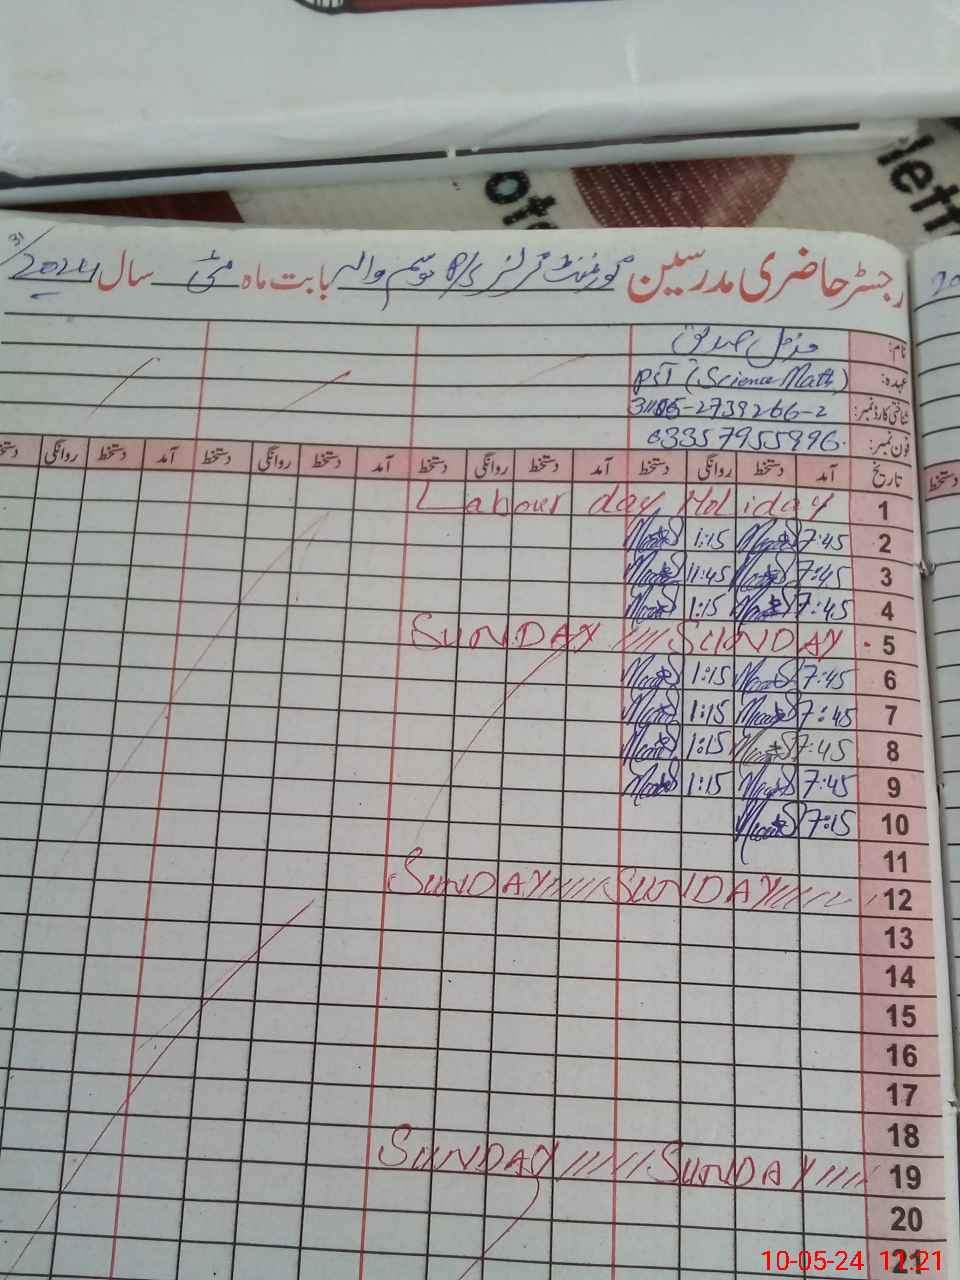 31
رجسٹر حاضری مدرسین گورنمنٹ گرلز P/S موسم والہ بابت ماہ مئی سال 2024
نام:
عہدہ: PST (Science Math)
شناختی کارڈ نمبر: 2739266-2
فون نمبر: 03357955996
تاریخ آمد دستخط روانگی دستخط آمد دستخط روانگی دستخط آمد دستخط روانگی دستخط آمد دستخط روانگی دستخط
1 Labour day Holiday
2 7:45 1:15
3 7:45 11:45
4 7:45 1:15
5 SUNDAY SUNDAY
6 7:45 1:15
7 7:45 1:15
8 7:45 1:15
9 7:45 1:15
10 7:15
11
12 SUNDAY SUNDAY
13
14
15
16
17
18
19 SUNDAY SUNDAY
20
21
دستخط
10-05-24 11:21